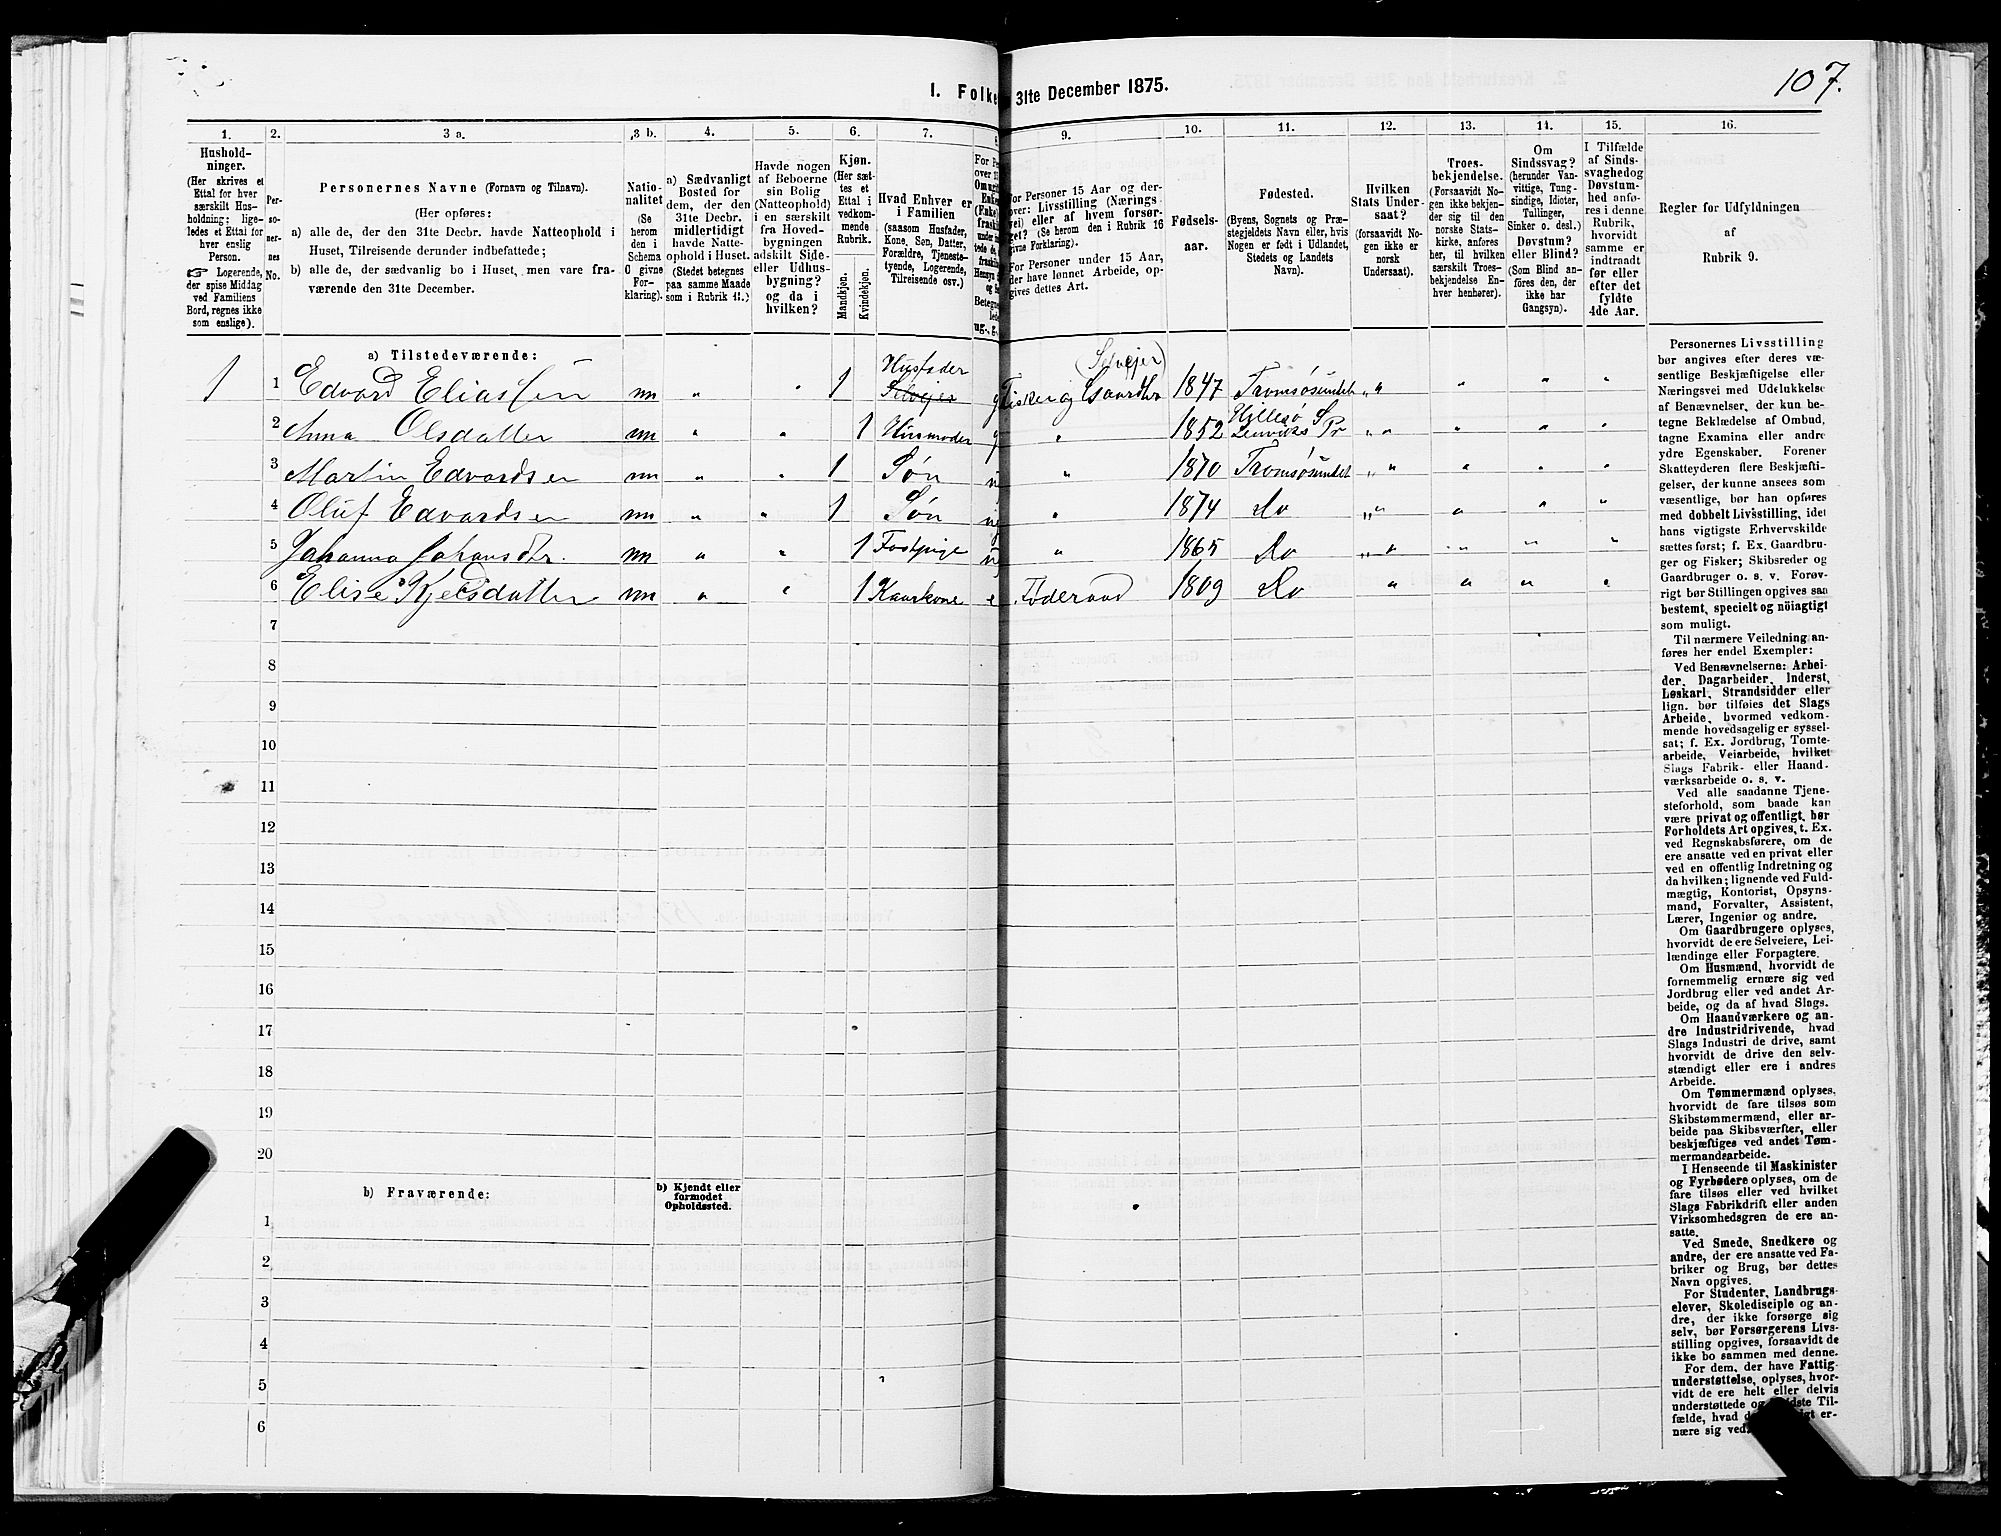 107.
I. Folke 31te December 1875.
1. 2. 3 a. 3 b. 4. 5. 6. 7. 8 9. 10. 11. 12. 13. 14. 15. 16.
Hushold-
ninger.
(Her skrives et
Ettal for hver
særskilt Hus-
holdning; lige-
ledes et Ettal for
hver enslig
Person.
☞ Logerende,
der spise Middag
ved Familiens
Bord, regnes ikke
som enslige).
Per-
so-
ner-
nes
No.
Personernes Navne (Fornavn og Tilnavn).
(Her opføres:
a) alle de, der den 31te Decbr. havde Natteophold i
Huset, Tilreisende derunder indbefattede;
b) alle de, der sædvanlig bo i Huset, men vare fra-
værende den 31te December.
Natio-
nalitet
(Se
herom
den i
Schema
O givne
For-
klaring).
a) Sædvanligt
Bosted for
dem, der den
31te Decbr.
midlertidigt
havde Natte-
ophold i Huset.
(Stedet betegnes
paa samme Maade
som i Rubrik 11.)
Havde nogen
af Beboerne
sin Bolig
(Natteophold)
i en særskilt
fra Hoved-
bygningen
adskilt Side-
eller Udhus-
bygning?
og da i
hvilken?
Kjøn.
(Her sæt-
tes et
Ettal i
vedkom-
mende
Rubrik.
Mandkjøn.
Kvindekjøn.
Hvad Enhver er
i Familien
(saasom Husfader,
Kone, Søn, Datter,
Forældre, Tjeneste-
tyende, Logerende,
Tilreisende osv.)
For Personer 15 Aar og der-
over: Livsstilling (Nærings-
vei) eller af hvem forsør-
get? (Se herom den i Rubrik 16
givne Forklaring).
For Personer under 15 Aar,
der have lønnet Arbeide, op-
gives dettes Art.
Fødsels-
aar.
Fødested.
(Byens, Sognets og Præ-
stegjeldets Navn eller, hvis
Nogen er født i Udlandet,
Stedets og Landets
Navn).
Hvilken
Stats Under-
saat?
(forsaavidt No-
gen ikke er
norsk
Undersaat).
Troes-
bekjendelse.
(Forsaavidt No-
gen ikke bekjen-
der sig til den
norske Stats-
kirke, anføres
her, til hvilken
særskilt Troes-
bekjendelse En-
hver henhører).
Om
Sindssvag?
(herunder Van-
vittige, Tung-
sindige, Idioter,
Tullinger,
Sinker o. desl.)
Døvstum?
eller Blind?
(Som Blind an-
føres den, der
ikke har
Gangsyn).
I Tilfælde
af Sinds-
svaghed og
Døvstum-
hed anfø-
res i denne
Rubrik,
hvorvidt
samme er
indtraadt
før eller
efter det
fyldte
4de Aar.
Regler for Udfyldningen
af
Rubrik 9.
a) Tilstedeværende:
1 1 Edvard Eliassen nn " " 1 Husfader Selveier g Fisker og Gaardbr (Selvejer) 1847 Tromsøsundet " " " "
2 Anna Olsdatter nn " " 1 Husmoder g " 1852 Hillesø S Lenviks Pr " " " "
3 Martin Edvardsen nn " " 1 Søn " 1870 Tromsøsundet " " " "
4 Oluf Edvardsen nn " " 1 Søn " 1874 Do " " " "
5 Johanna Johansdtr. nn " " 1 Fostpige " 1865 Do " " " "
6 Elise nn " " 1 Kaarkone e Føderaad 1809 Do " " " "
7
8
9
10
11
12
13
14
15
16
17
18
19
20
b) Fraværende:
b) Kjendt eller
formodet
Opholdssted.
1
2
3
4
5
6
Personernes Livsstilling
bør angives efter deres væ-
sentlige Beskjæftigelse eller
Næringsvei med Udelukkelse
af Benævnelser, der kun be-
tegne Beklædelse af Ombud,
tagne Examina eller andre
ydre Egenskaber. Forener
Skatteyderen flere Beskjæfti-
gelser, der kunne ansees som
væsentlige, bør han opføres
med dobbelt Livsstilling, idet
hans vigtigste Erhvervskilde
sættes først; f. Ex. Gaardbru-
ger og Fisker; Skibsreder og
Gaardbruger o. s. v. Forøv-
rigt bør Stillingen opgives saa
bestemt, specielt og nöiagtigt
som muligt.
Til nærmere Veiledning an-
føres her endel Exempler:
Ved Benævnelserne: Arbei-
der, Dagarbeider, Inderst,
Løskarl, Strandsidder eller
lign. bør tilføies det Slags
Arbeide, hvormed vedkom-
mende hovedsagelig er syssel-
sat; f. Ex. Jordbrug, Tomte-
arbeide, Veiarbeide, hvilket
Slags Fabrik- eller Haand-
værksarbeide o. s. v.
Ved alle saadanne Tjene-
steforhold, som baade kan
være privat og offentligt, bør
Forholdets Art opgives, t. Ex.
ved Regnskabsførere, om de
ere ansatte ved en privat eller
ved en offentlig Indretning og
da hvilken; lignende ved Fuld-
mægtig, Kontorist, Opsyns-
mand, Forvalter, Assistent,
Lærer, Ingeniør og andre.
Om Gaardbrugere oplyses,
hvorvidt de ere Selveiere, Lei-
lændinge eller Forpagtere.
Om Husmænd, hvorvidt de
fornemmelig ernære sig ved
Jordbrug eller ved andet Ar-
beide, og da af hvad Slags.
Om Haandværkere og an-
dre Industridrivende, hvad
Slags Industri de drive, samt
hvorvidt de drive den selv-
stændigt eller ere i andres
Arbeide.
Om Tømmermænd oplyses,
hvorvidt de fare tilsøs som
Skibstømmermænd, eller ar-
beide paa Skibsværfter, eller
beskjæftiges ved andet Tøm-
mermandsarbeide.
I Henseende til Maskinister
og Fyrbødere oplyses, om de
fare tilsøs eller ved hvilket
Slags Fabrikdrift eller anden
Virksomhedsgren de ere an-
satte.
Ved Smede, Snedkere og
andre, der ere ansatte ved Fa-
briker og Brug, bør dettes
Navn opgives.
For Studenter, Landbrugs-
elever, Skoledisciple og an-
dre, der ikke forsørge sig
selv, bør Forsørgerens Livs-
stilling opgives, forsaavidt de
ikke bo sammen med denne.
For dem, der have Fattig-
understøttelse, oplyses, hvor-
vidt de ere helt eller delvis
understøttede og i sidste Til-
fælde, hvad er-
nære sig ved.